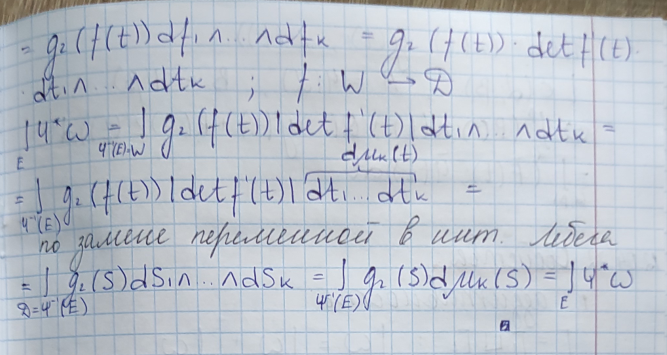 = g₂(f(t)) df₁∧...∧dfₖ = g₂(f(t))·det f'(t)·
dt₁∧...∧dtₖ ; f: W → D
∫_E Ψ*ω = ∫_{Ψ⁻¹(E)=W} g₂(f(t))|det f'(t)|dt₁∧...∧dtₖ =
dμₖ(t)
= ∫_{Ψ⁻¹(E)} g₂(f(t))|det f'(t)| dt₁...dtₖ =
по замене переменной в инт. Лебега
= ∫_{D=Ψ⁻¹(E)} g₂(S)dS₁∧...∧dSₖ = ∫_{Ψ⁻¹(E)} g₂(S)dμₖ(S) = ∫_E Ψ*ω